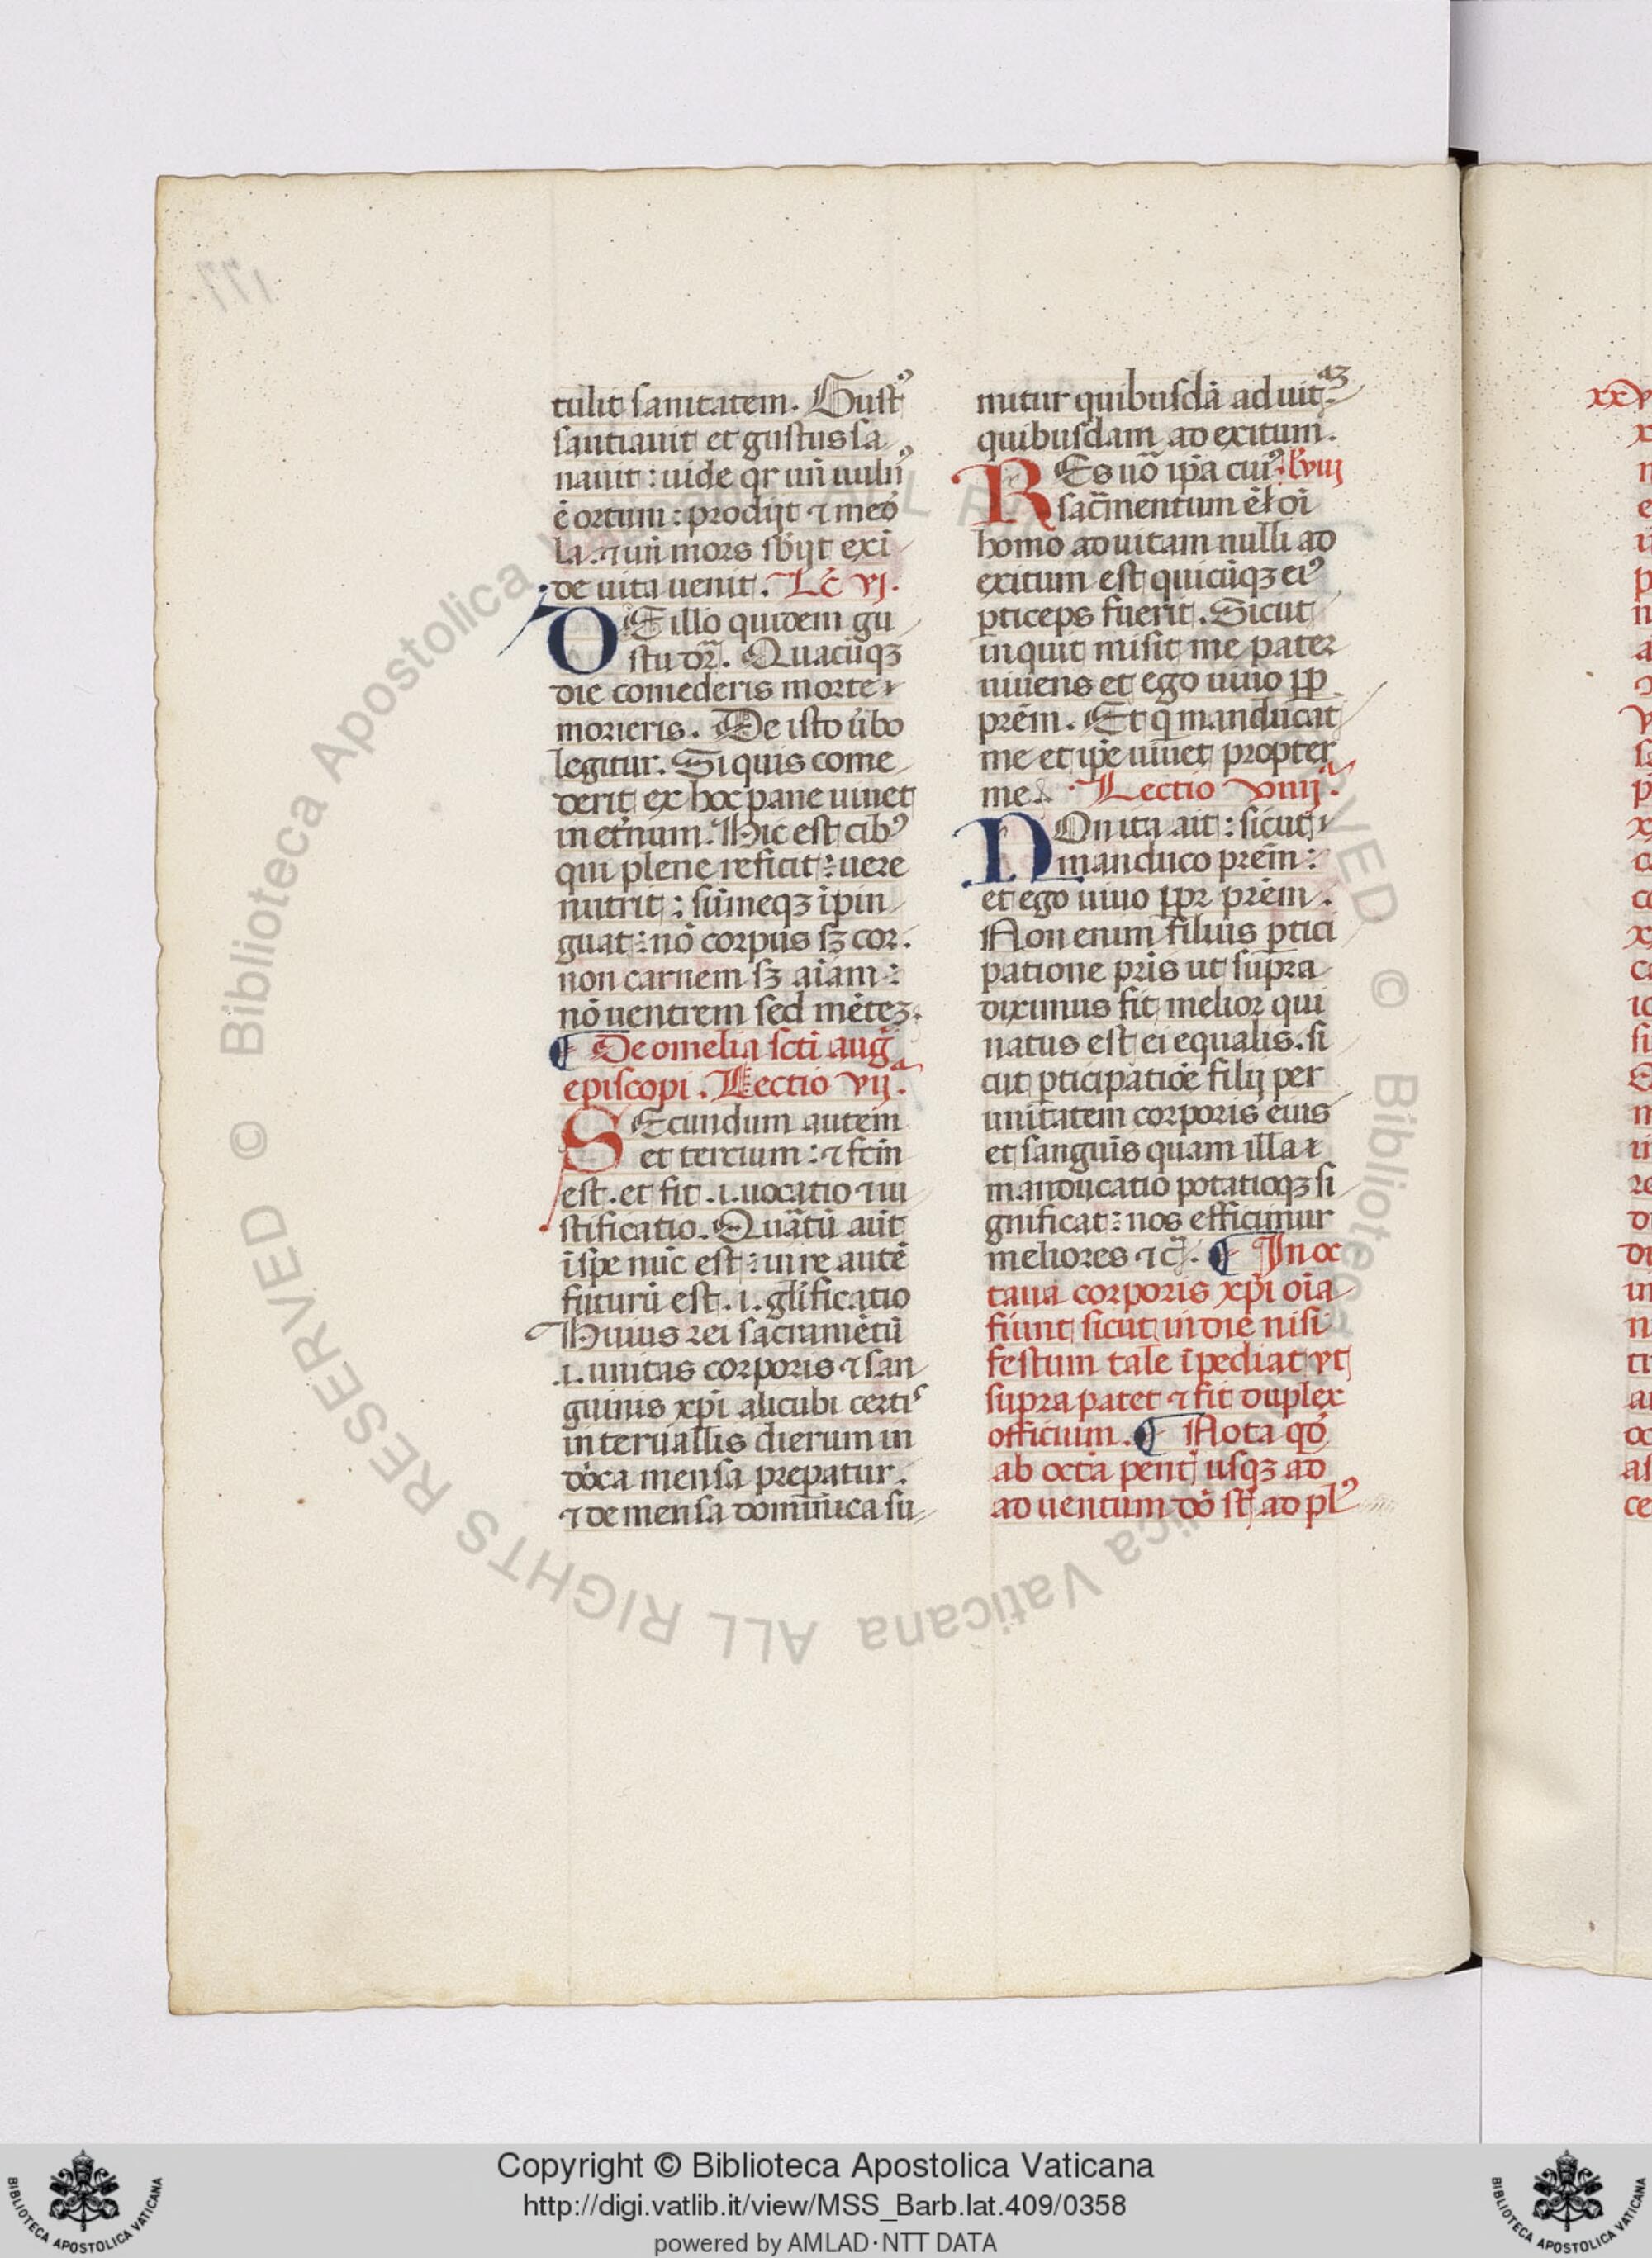 tulit sanitatem. Gustꝰ
sautiauit et gustus sa
nauit: uide qr un̄ uuln̄ꝰ
ē ortum: prodijt ⁊ međ
la. ⁊ un̄ mors sb̄ijt exī
de uita uenit. Lc̄ vj.
DE illo quidem gu
stu dr̄. Quacūqꝫ
die comederis morte
morieris. De isto ūbo
legitur. Si quis come
derit ex hoc pane uiuet
in et̄num. Hic est cibꝰ
qui plene reficit: uere
nutrit: sūmeqꝫ īpin
guat: nō corpus sꝫ cor.
non carnem sꝫ aīam:
nō uentrem sed mētēꝫ.
¶ De omelia scti auḡ
episcopi. Lectio vijᵃ.
SEcundum autem
et tercium: ⁊ fctm̄
est. et fit .i. uocatio ⁊ iu
stificatio. Quātū aūt
ī spe nūc est: in re autē
futurū est .i. gl̄ificatio
Huius rei sacramētū
.i. unitas corporis ⁊ san
guinis xp̄i alicubi certis
interuallis dierum in
dōca mensa prepatur.
⁊ de mensa dominica su
mitur quibusdā ad uitaꝫ
quibusdam ad exitum.
REs uō ip̄a cuiꝰ. l. viij
sac̄mentum ē ł oī
homo ad uitam nulli ad
exitum est quicūqꝫ eiꝰ
pticeps fuerit. Sicut
inquit misit me pater
uiuens et ego uiuo pp̄
prēm. Et q̄ manducat
me et ip̄e uiuet propter
me. Lectio viiijᵃ.
NOn ita ait: sicut
manduco prēm:
et ego uiuo ppr̄ prēm.
Non enim filius ptici
patione pris ut supra
diximus fit melior qui
natus est ei equalis. si
cut pticipatiōe filij per
unitatem corporis eius
et sanguis quam illa
manducatio potatioqꝫ si
gnificat: nos efficimur
meliores ⁊ c̄. ¶ In oc
taua corporis xp̄i oīa
fiunt sicut in die nisi
festum tale īpediat vt
supra patet ⁊ fit duplex
officium. ¶ Nota qđ
ab octa pent usqꝫ ad
aduentum dō st̄ ad plꝰ
Copyright © Biblioteca Apostolica Vaticana
http://digi.vatlib.it/view/MSS_Barb.lat.409/0358
powered by AMLAD·NTT DATA